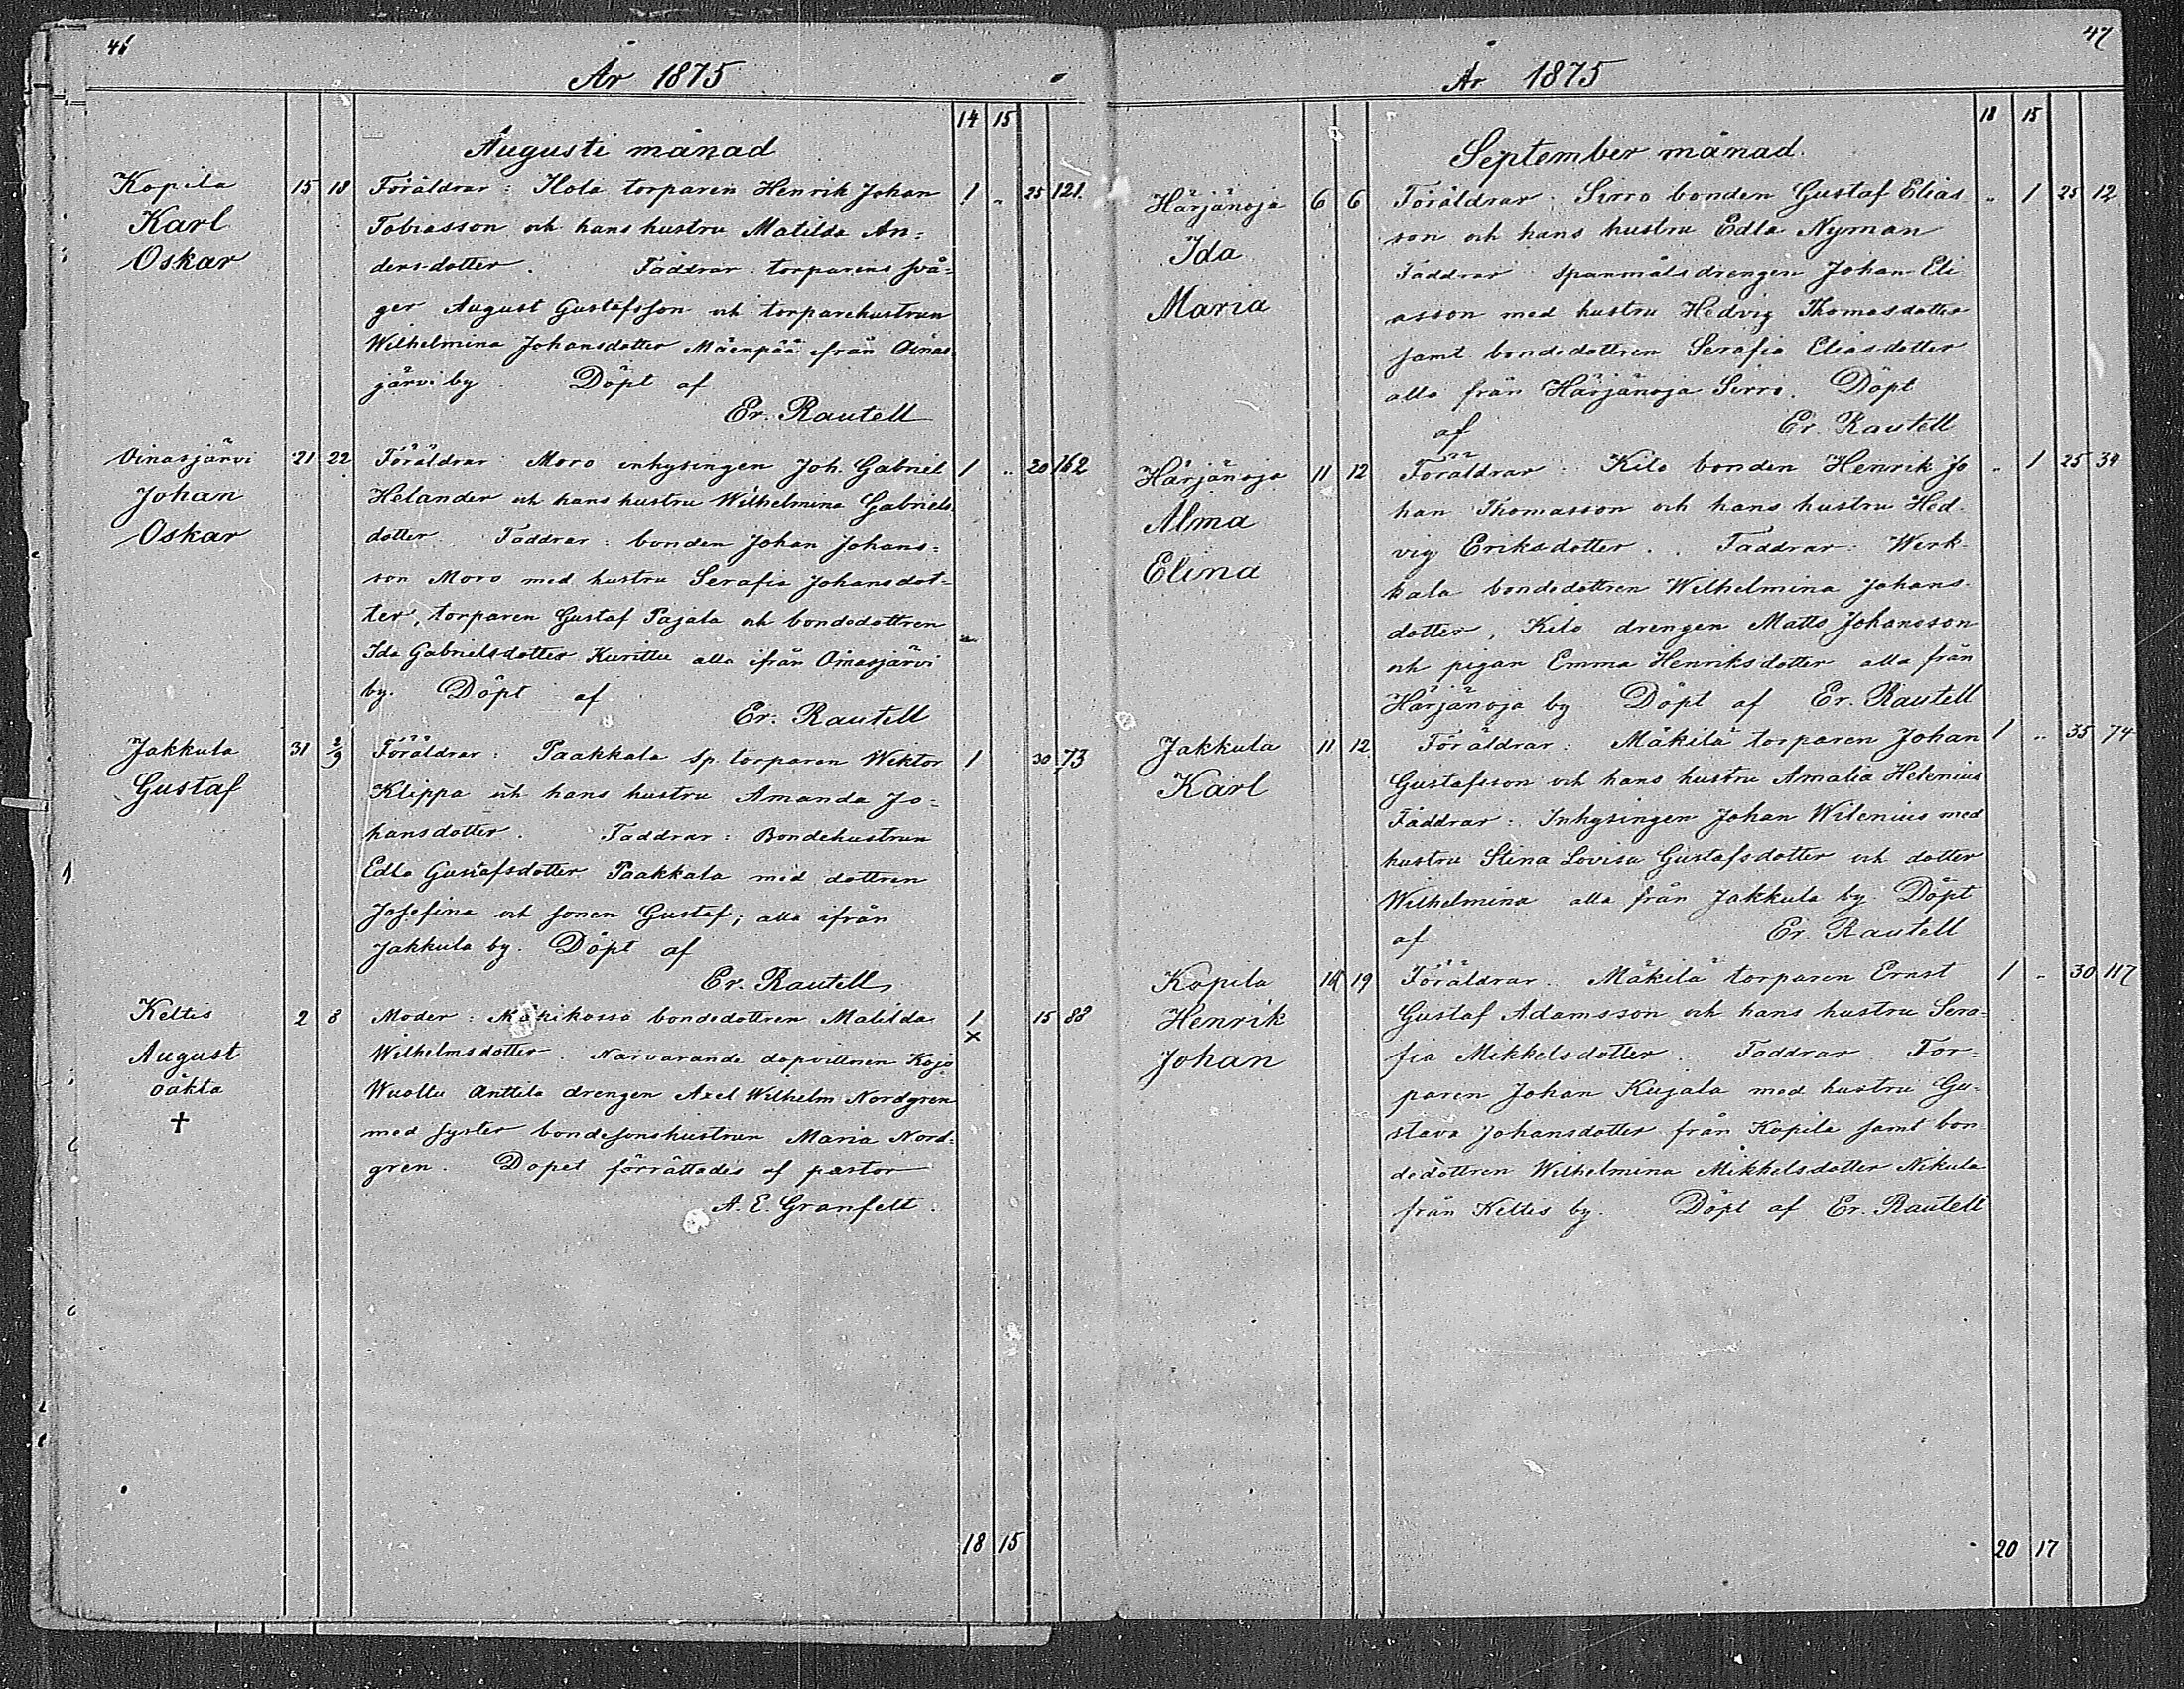 46
År 1875
14 15
Augusti månad
Kopila 15 18 Föräldrar: Hola torparen Henrik Johan 1 " 25 121.
Karl Tobiasson och hans hustru Matilda An=
Oskar dersdotter. Faddrar: torparens svå=
ger August Gustafsson och torparehustrun
Wilhelmina Johansdotter Mäenpää ifrån Oinas
järvi by Döpt af
Er. Rautell
Oinasjärvi 21 22 Föräldrar: Moro inhysingen Joh. Gabriel 1 " 20 162
Johan Helander och hans hustru Wilhelmina Gabriels
Oskar dotter. Faddrar: bonden Johan Johans=
son Moro med hustru Serafia Johansdot=
ter, torparen Gustaf Pajala och bondedottren
Ida Gabrielsdotter Kurittu alla ifrån Oinasjärvi
by. Döpt af
Er. Rautell
Jakkula 31 2/9 Föräldrar: Paakkala sp. torparen Wiktor 1 30 73
Gustaf Klippa och hans hustru Amanda Jo=
hansdotter. Faddrar: Bondehustrun
Edla Gustafsdotter Paakkala med dottren
Josefina och sonen Gustaf; alla ifrån
Jakkula by. Döpt af
Er. Rautell
Keltis 2 8 Moder: bondedottren Matilda 1 15 88
August Wilhelmsdotter. Närvarande dopvittnen Kojo ×
oäkta Wuoltu Anttila drengen Axel Wilhelm Nordgren
† med syster bondesonshustrun Maria Nord=
gren. Dopet förrättades af pastor
A. E. Granfelt.
18 15
47
År 1875
18 15
September månad.
Härjänoja 6 6 Föräldrar: Sirro bonden Gustaf Elias " 1 25 12
Ida son och hans hustru Edla Nyman
Faddrar spanmålsdrengen Johan Eli
Maria asson med hustru Hedvig Thomasdotter
samt bondedottren Serafia Eliasdotter
alla från Härjänoja Sirro. Döpt
af Er. Rautell
Härjänoja 11 12 Föräldrar: Kilo bonden Henrik Jo " 1 25 34
Alma han Thomasson och hans hustru Hed
vig Eriksdotter.. Faddrar: Werk-
Elina kala bondedottren Wilhelmina Johans
dotter, Kilo drengen Matts Johansson
och pigan Emma Henriksdotter alla från
Härjänoja by Döpt af Er. Rautell
Jakkula 11 12 Föräldrar: Mäkilä torparen Johan 1 " 35 74
Karl Gustafsson och hans hustru Amalia Helenius
Faddrar: Inhysingen Johan Wilenius med
hustru Stina Lovisa Gustafsdotter och dotter
Wilhelmina alla från Jakkula by Döpt
af Er. Rautell
Kopila 14 19 Föräldrar. Mäkilä torparen Ernst 1 " 30 117
Henrik Gustaf Adamsson och hans hustru Sera-
Johan fia Mikkelsdotter. Faddrar Tor=
paren Johan Kujala med hustru Gu-
stava Johansdotter från Kopila samt bon
dedottren Wilhelmina Mikkelsdotter Nikula
från Keltis by. Döpt af Er. Rautell
20 17